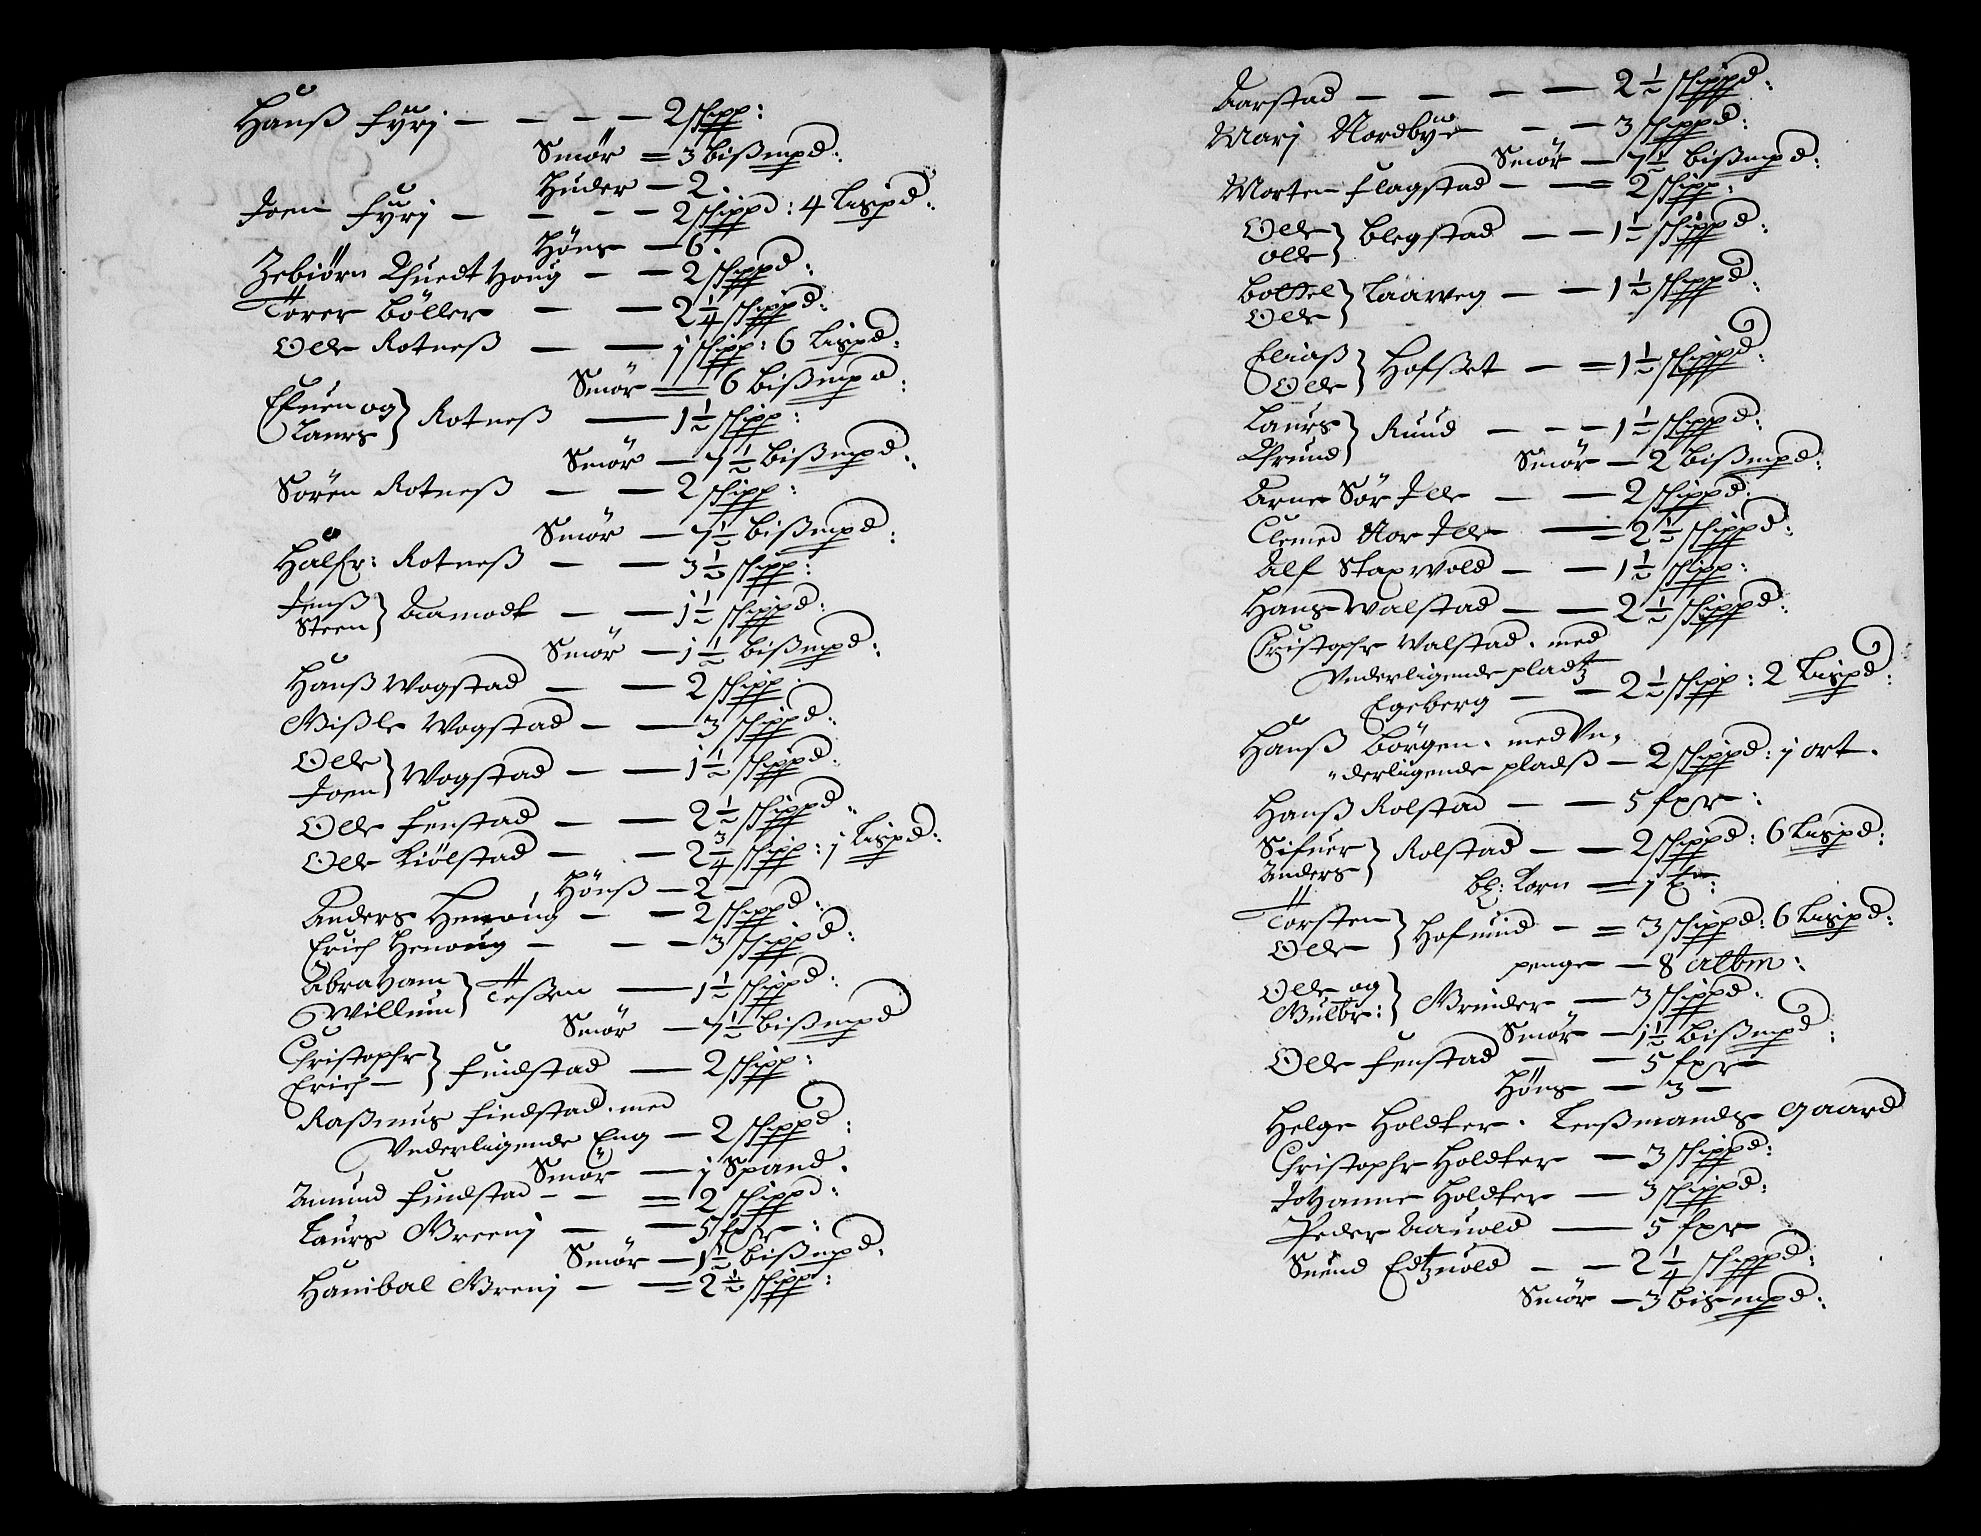 Hanß Fyrj — — — — 2 skipp:
Smör — 3 bißmpd:
Huder — 2.
Joen Fyrj — — — — 2 skippd: 4 Lispd:
Höns — 6.
Zebiörn Thuedt Houg — — 2 skippd:
Törer Böller — — 2 1/4 skippd:
Olle Rotneß — — j skipp: 6 Lispd:
Smör — 6 bißmpd:
Efuen og
Laurs } Rotneß — 1 1/2 skipp:
Smör — 7 1/2 bißmpd:
Sören Rotneß — — 2 skipp:
Smör — 7 1/2 bißmpd:
Halfr: Rotneß — — 3 1/2 skipp:
Jenß
Steen } Aamodt — — j 1/2 skippd:
Smör — j 1/2 bißmpd:
Hanß Wogstad — — 2 skipp:
Gißle Wogstad — — 3 skippd:
Olle
Joen } Wogstad — — j 1/2 skippd:
Olle Fenstad — — 2 1/2 skippd:
Olle Kiölstad — — 2 3/4 skipp: j Lispd:
Hönß — 2 —
Anders Henoug — — 2 skippd:
Erich Henoug — — — 3 skippd:
Abraham
Willum } Teßen — 1 1/2 skippd:
Smör — 7 1/2 bißmpd
Christopfr
Erich — } Findstad — 2 skipp:
Raßmus Findstad. med
Vnderligende Eng — 2 skippd:
Smör — j Spand.
Amund Findstad — — 2 skippd:
Laurs Greenj — — 5 fxr — :
Smör — 1 1/2 bißmpd:
Hanibal Grenj — — 2 1/2 skipp:
Aarstad — — — — 2 1/2 skippd:
Marj Nordbye — — 3 skippd:
Smör — 7 1/2 bißmpd:
Morten Flagstad — — 2 skipp:
Olle
Olle } Blegstad — — 1 1/2 skippd:
Bottel
Olle } Laaweg — — 1 1/2 skippd:
Eliaß
Olle } Hofset — — 1 1/2 skippd:
Laurs
Thrund } Ruud — — — 1 1/2 skippd:
Smör — 2 bißmpd:
Arne Sör Ille — — 2 skippd:
Clemed Nor Ille — — 2 1/2 skippd:
Alf Staxwold — — 1 1/2 skipp:
Hans Walstad — — 2 1/2 skippd:
Cristopfr Walstad. med
Vnderligende pladtz
Egeberg — — 2 1/2 skipp: 2 Lispd:
Hanß Börgen. med Vn,
"derligende pladß — 2 skippd: j ort.
Hanß Rolstad — — 5 fxr — :
Sifuer
Anders } Rolstad — — 2 skippd: 6 Lispd:
bl: Korn — j
Torsten
Olle } Hofuind — — 3 skippd: 6 Lispd:
penge — 8 albm:
Olle og
Gulbr: } Grinder — 3 skippd:
Smör — 1 1/2 bißmpd:
Olle Fenstad — — 5 fxr —
Höns — 3 —
Helge Holdter. Lenßmands Gaard
Christopfr Holdter — 3 skippd:
Johanne Holdter — 3 skippd:
Peder Aauold — 5 fxr
Suend Edtzuold — — 2 1/4 skippd:
Smör — 3 bismpd: